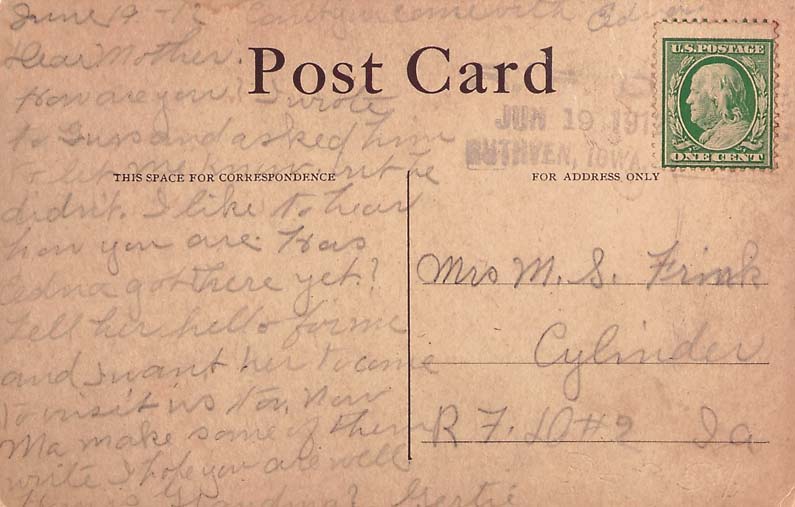 June 19 - 12 Can't you come with Edna.
Dear Mother.
How are you. I wrote
to Guss and asked him
to let me know but he
didn't. I like to hear
how you are. Has
Edna got there yet?
Tell her hello for me
and I want her to come
to visit us too. Now
Ma make some of them
write I hope you are well
How is Grandma? Gertie
Post Card
THIS SPACE FOR CORRESPONDENCE
FOR ADDRESS ONLY
U.S. POSTAGE
ONE CENT
JUN 19 191
RUTHVEN, IOWA.
Mrs M. S. Frink
Cylinder
R F. D #2 Ia